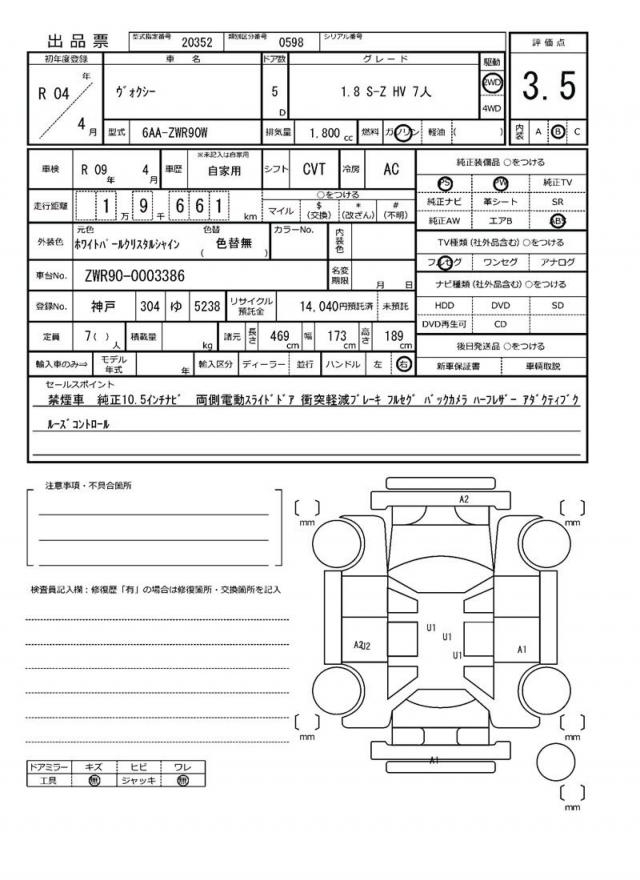 出品票 型式指定番号 20352 類別区分番号 0598 シリアル番号
評価点
3.5
内装 A B C
初年度登録 車名 ドア数 グレード 駆動
R 04 年 4 月
ヴォクシー 5 D 1.8 S-Z HV 7人 2WD 4WD
型式 6AA-ZWR90W 排気量 1.800 cc 燃料 ガソリン 軽油 ( )
車検 R 09 年 4 月 車歴 ※未記入は自家用 自家用 シフト CVT 冷房 AC
走行距離 1 万 9 千 6 6 1 km
○をつける
マイル $(交換) *(改ざん) #(不明)
外装色 元色 ホワイトパールクリスタルシャイン 色替 (色替無) カラーNo. 内装色
車台No. ZWR90-0003386 名変期限 月 日
登録No. 神戸 304 ゆ 5238 リサイクル預託金 14,040円預託済 未預託
定員 7( )人 積載量 kg 諸元 長さ 469 cm 幅 173 cm 高さ 189 cm
輸入車のみ⇒ モデル年式 年 輸入区分 ディーラー 並行 ハンドル 左 右
純正装備品 ○をつける
PS PW 純正TV
純正ナビ 革シート SR
純正AW エアB ABS
TV種類(社外品含む)○をつける
フルセグ ワンセグ アナログ
ナビ種類(社外品含む)○をつける
HDD DVD SD
DVD再生可 CD
後日発送品 ○をつける
新車保証書 車輌取説
セールスポイント
禁煙車 純正10.5インチナビ 両側電動スライドドア 衝突軽減ブレーキ フルセグ バックカメラ ハーフレザー アダクティブク
ルーズコントロール
注意事項・不具合箇所
検査員記入欄:修復歴「有」の場合は修復箇所・交換箇所を記入
ドアミラー キズ ヒビ ワレ
工具 無 ジャッキ 無
A2
mm
mm
U1
U1
U1
A2U2
A1
mm
mm
A1
mm